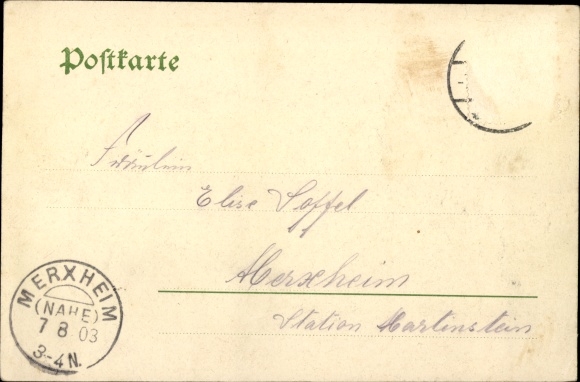 Postkarte
Fräulein
Elise Soffel
Merxheim
Station Martinstein
MERXHEIM
(NAHE)
7 8 03
3-4N.